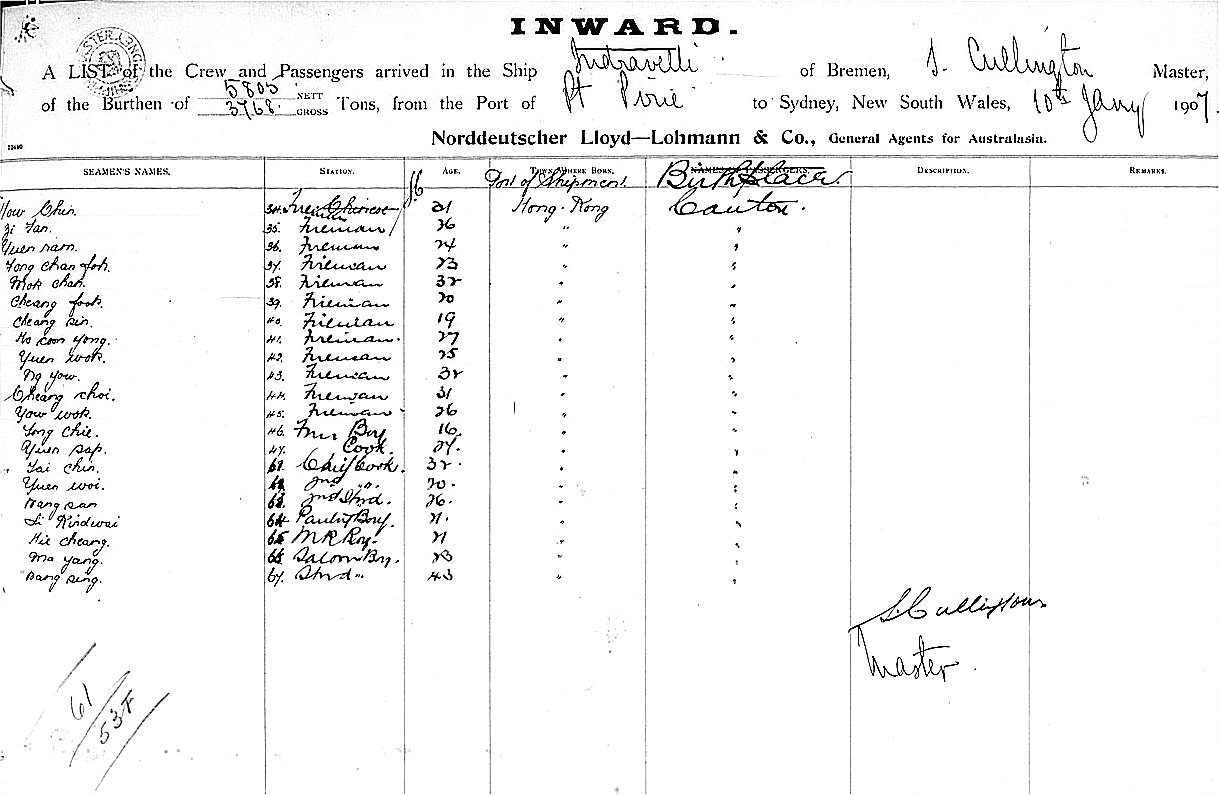 INWARD.
A LIST of the Crew and Passengers arrived in the Ship Indravelli of Bremen, S. Cullington Master,
of the Burthen of 5805 NETT 3768 GROSS Tons, from the Port of Pt Pirie to Sydney, New South Wales, 10th Jany 1907.
Norddeutscher Lloyd—Lohmann & Co., General Agents for Australasia.
SEAMEN'S NAMES. STATION. AGE. TOWN WHERE BORN. NAMES OF PASSENGERS. DESCRIPTION. REMARKS.
Port of Shipment. Birthplace.
Yow Chin. 34. Chinese 21 Hong-Kong Canton.
Zi Tan. 35. Fireman 26 " "
Yuen nam. 36. Fireman 24 " "
Tong Chan foh. 37. Fireman 23 " "
Mok chan. 38. Fireman 32 " "
Cheang fook. 39. Fireman 20 " "
Cheang sin. 40. Fireman 19 " "
Ho coon yong. 41. Fireman. 27 " "
Yuen wok. 42. Fireman 25 " "
Ng yow. 43. Fireman 32 " "
Cheang choi. 44. Fireman 31 " "
Yow wok. 45. Fireman 26 " "
Tong Chie. 46. Boy 16 " "
Yuen sap. 47. Cook. 27. " "
Tai chin. Chief Cook. 32. " "
Yuen woi. 2nd ". 20. " "
Wang san 63. 2nd Stwd. 26. " "
Li Kindwai 64 Pantry Boy. 21. " "
Hie cheang. 65 M.R. Boy. 21 " "
Ma yang. 66 Saloon Boy. 23 " "
Wang sing. 67. Stwd " 43 " "
S. Cullington
Master.
61
537